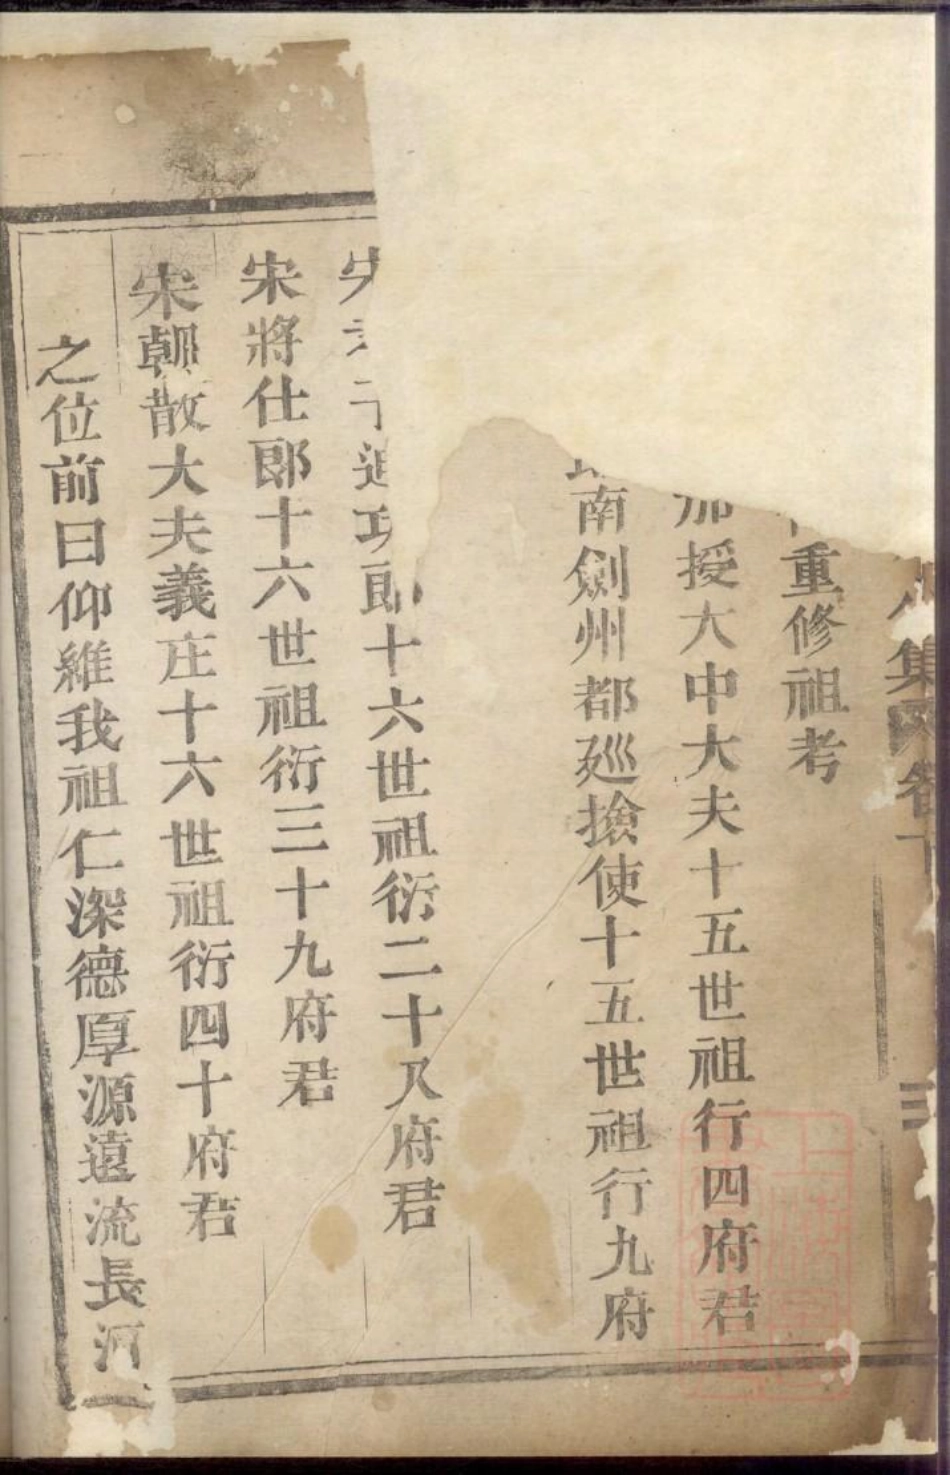 集
重修祖考
授大中大夫十五世祖行四府君
南劍州都廵撿使十五世祖行九府
十六世祖衍二十又府君
宋將仕郎十六世祖衍三十九府君
宋朝散大夫義庄十六世祖衍四十府君
之位前曰仰維我祖仁深德厚源遠流長河